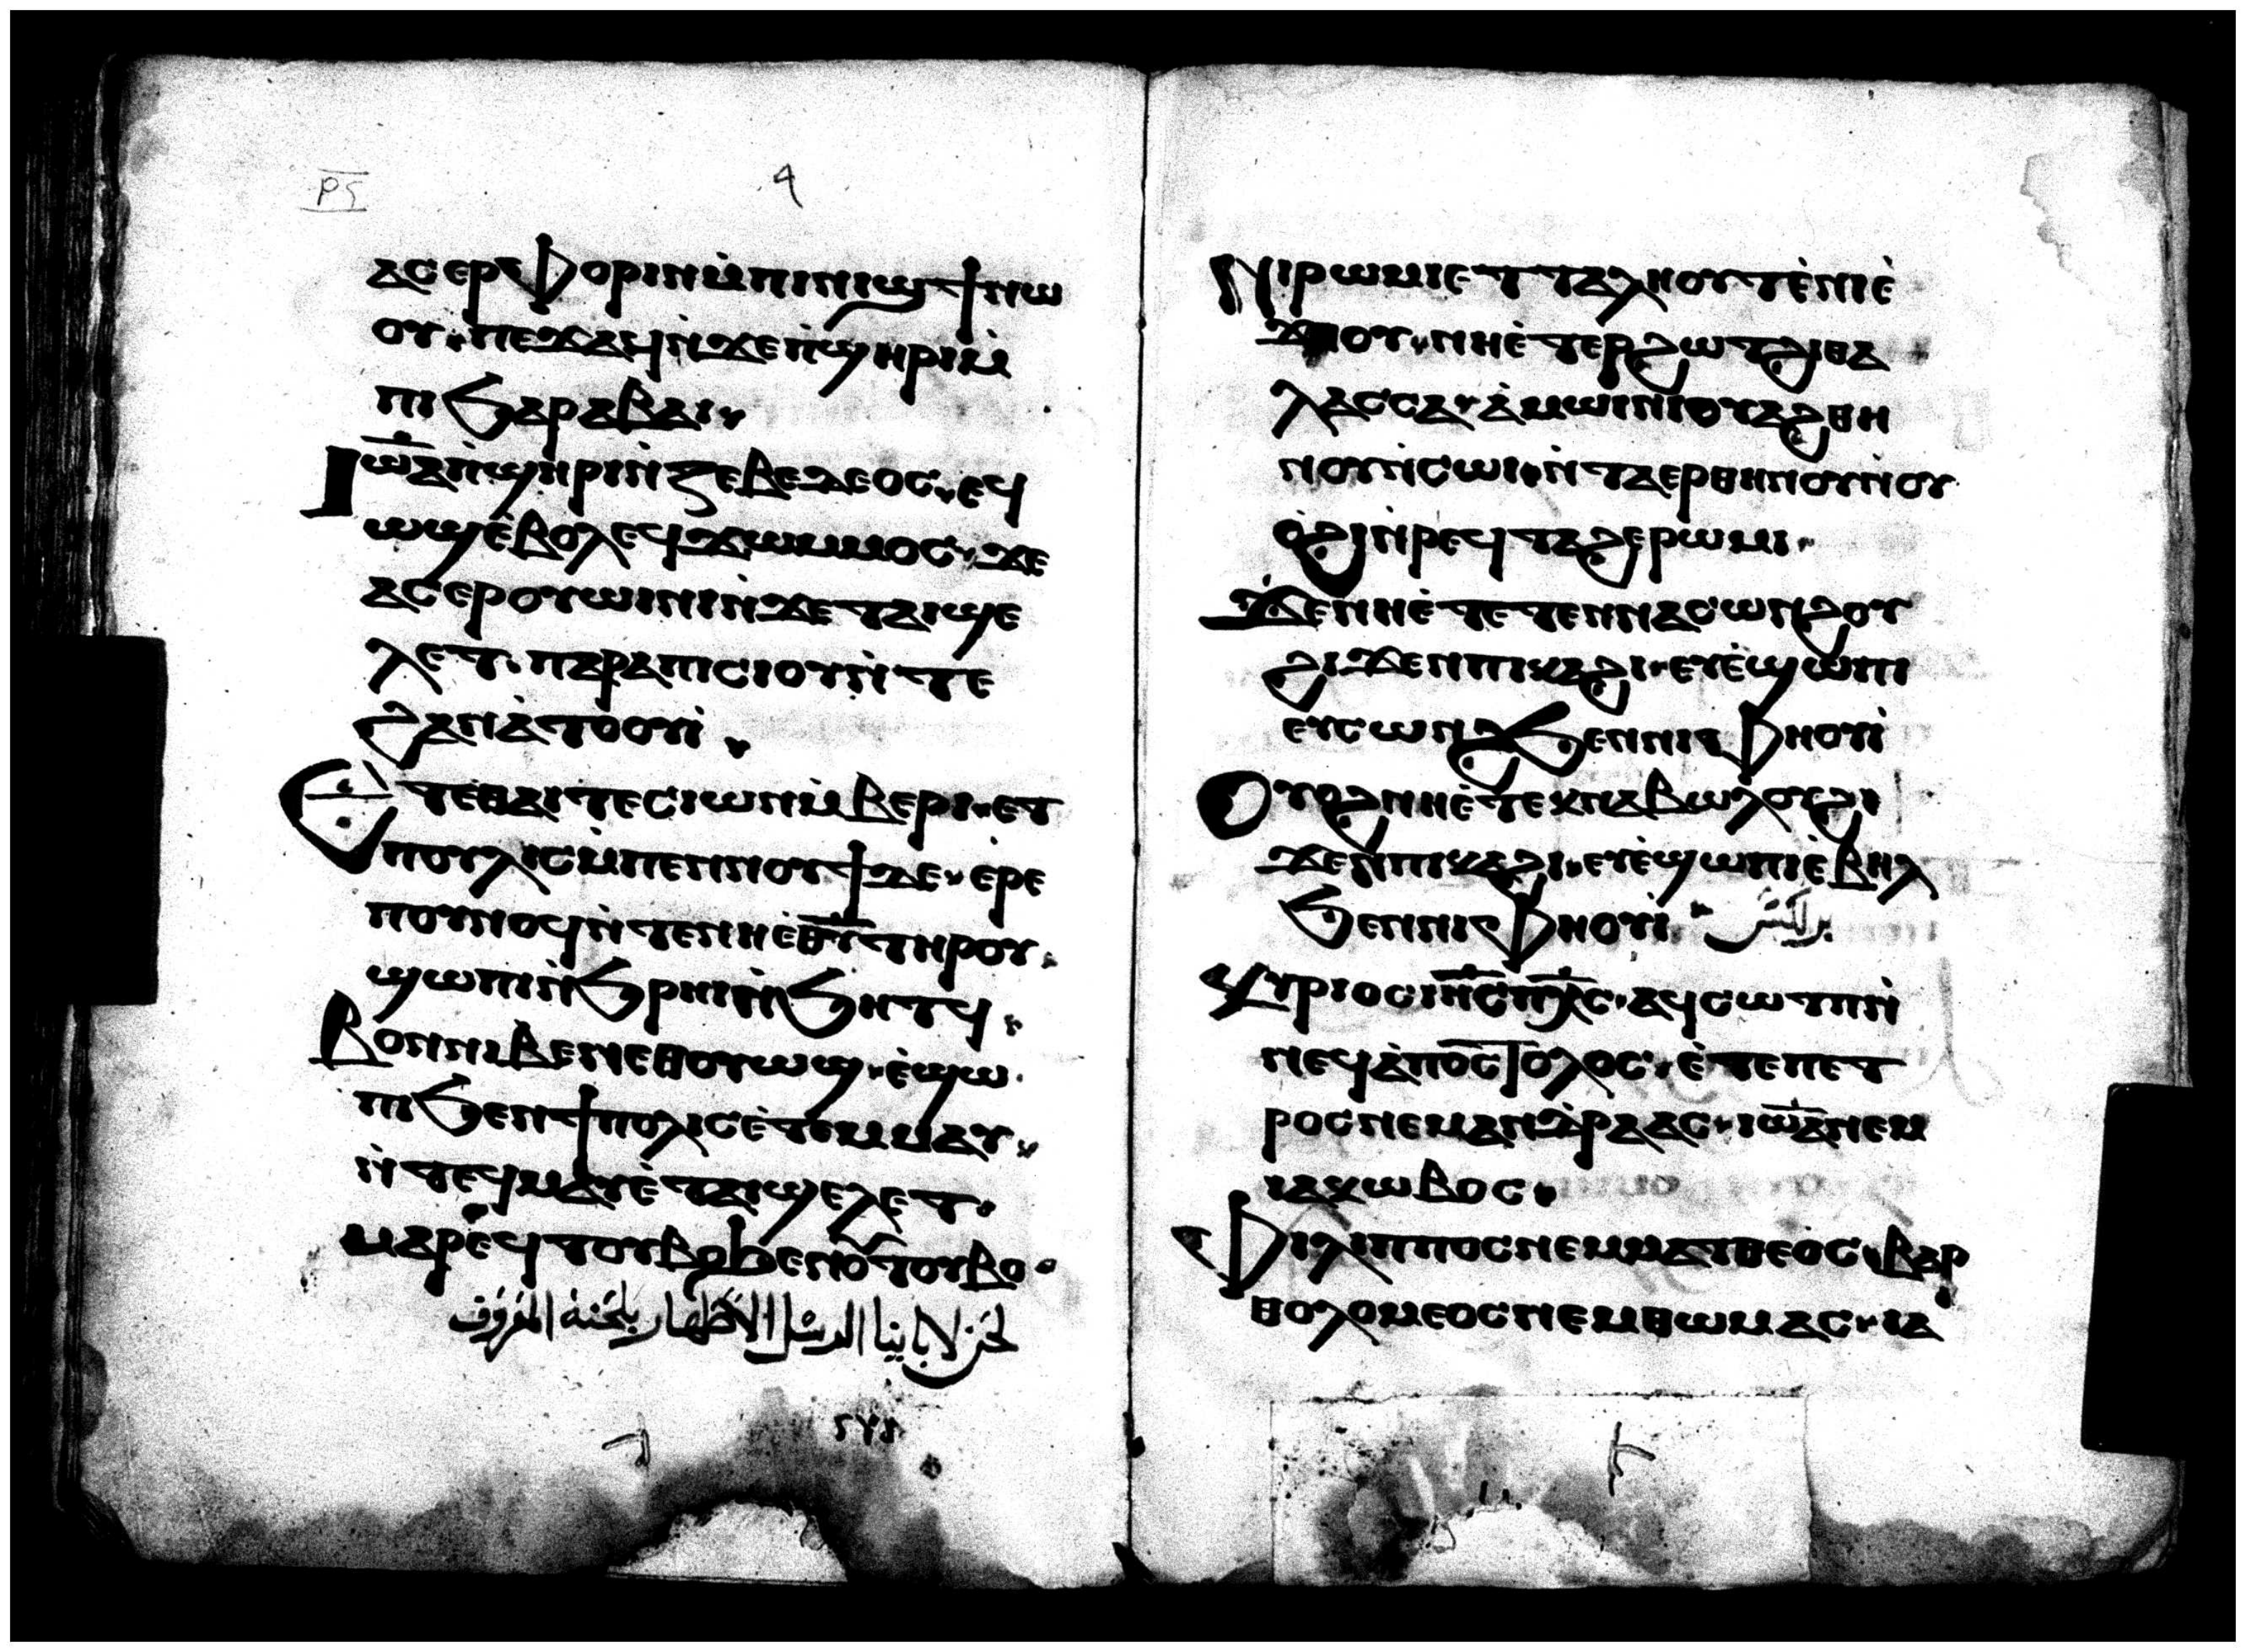 ⲣⲋ
ⲁⲥⲉⲣⲫⲟⲣⲓⲛⲙ̀ⲡⲓⲛⲓϣϯⲛⲱ
ⲟⲩ ⲡⲉϫⲁϥⲛ̀ϫⲉⲡ̀ϣⲏⲣⲓⲙ̀
ⲡⲓϧⲁⲣⲁⲃⲁⲓ
Ⲓⲱ̅ⲁ̅ⲡ̀ϣⲏⲣⲓⲛ̀ⲍⲉⲃⲉⲇⲉⲟⲥ ⲉϥ
ⲱϣⲉ̀ⲃⲟⲗⲉϥϫⲱⲙⲙⲟⲥ ϫⲉ
ⲁⲥⲉⲣⲟⲩⲱⲓⲛⲓⲛ̀ϫⲉⲧⲁⲓϣⲉ
ⲗⲉⲧ ⲡⲁⲣⲁⲡⲓⲥⲓⲟⲩⲛ̀ⲧⲉ
ϩⲁⲛⲁ̀ⲧⲟⲟⲩⲓ̀
Ⲉⲧⲉⲑⲁⲓⲧⲉⲥⲓⲱⲛⲙ̀ⲃⲉⲣⲓ ⲉⲧ
ⲡⲟⲩⲗⲓⲥⲙ̀ⲡⲉⲛⲛⲟⲩϯϫⲉ ⲉ̀ⲣⲉ
ⲡⲟⲩⲛⲟϥⲛ̀ⲧⲉⲛⲏⲉ̀ⲑ̅ⲩ̅ⲧⲏⲣⲟⲩ
ϣⲱⲡⲓⲛ̀ϧⲣⲏⲓⲛ̀ϧⲏⲧϥ
Ⲃⲟⲛⲛⲓⲃⲉⲛⲉⲑⲟⲩⲱϣ ⲉ̀ϣⲱ
ⲡⲓϧⲉⲛϯⲡⲟⲗⲓⲥⲉ̀ⲧⲉⲙⲙⲁⲩ
ⲛ̀ⲧⲉϥⲙⲁⲩⲉ̀ⲧⲁⲓϣⲉⲗⲉⲧ
ⲙⲁⲣⲉϥⲧⲟⲩⲃⲟϧⲉⲛⲟⲩⲧⲟⲩⲃⲟ
لحن لابائنا الرسل الاطهار بلحنه المعروف
Ⲛⲓⲣⲱⲙⲓⲉⲧⲧⲁⲗⲏⲟⲩⲧⲉ̀ⲛⲓⲉ̀
ϫⲏⲟⲩ ⲛⲏⲉ̀ⲧⲉⲣϩⲱⲧϩⲓⲑⲁ
ⲗⲁⲥⲥⲁ ⲁ̀ⲙⲱⲓⲛⲓⲟⲩⲁϩⲑⲏ
ⲛⲟⲩⲛ̀ⲥⲱⲓ ⲛ̀ⲧⲁⲉⲣⲑⲏⲛⲟⲩⲛ̀ⲟⲩ
ⲟ̀ϩⲓⲛ̀ⲣⲉϥⲧⲁϩⲉⲣⲱⲙⲓ
Ϫⲉⲛⲏⲉ̀ⲧⲉⲧⲉⲛⲛⲁⲥⲱⲛϩⲟⲩ
ϩⲓϫⲉⲛⲡⲓⲕⲁϩⲓ ⲉⲩⲉ̀ϣⲱⲡⲓ
ⲉⲩⲥⲱⲛϩϧⲉⲛⲛⲓⲫⲏⲟⲩⲓ̀
Ⲟⲩⲟϩⲛⲏⲉ̀ⲧⲉⲕⲛⲁⲃⲱⲗⲟⲩϩⲓ
ϫⲉⲛⲡⲓⲕⲁϩⲓ ⲉⲩⲉ̀ϣⲱⲡⲓⲉ̀ⲃⲏⲗ
ϧⲉⲛⲛⲓⲫⲏⲟⲩⲓ̀
Ⲕⲩⲣⲓⲟⲥⲓⲏ̅ⲥ̅ⲡⲭ̅ⲥ̅ ⲁϥⲥⲱⲧⲡⲛ̀
ⲛⲉϥⲁ̀ⲡⲟⲥⲧⲟⲗⲟⲥ ⲉ̀ⲧⲉⲡⲉⲧ
ⲣⲟⲥⲛⲉⲙⲁⲛⲇⲣⲉⲁⲥ ⲓⲱ̅ⲁ̅ⲛⲉⲙ
ⲓⲁⲕⲱⲃⲟⲥ
Ⲫⲓⲗⲓⲡⲡⲟⲥⲛⲉⲙⲙⲁⲧⲑⲉⲟⲥ ⲃⲁⲣ
ⲑⲟⲗⲟⲙⲉⲟⲥⲛⲉⲙⲑⲱⲙⲁⲥ ⲓⲁ